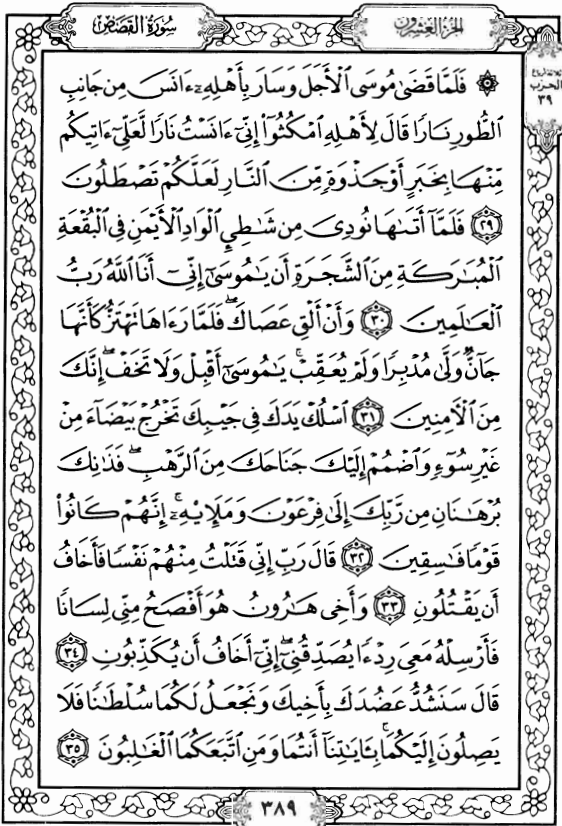 سُورَةُ القَصَصِ
الجزء العشرون
ثلاثة أرباع
الحزب
٣٩
۞ فَلَمَّا قَضَىٰ مُوسَى ٱلْأَجَلَ وَسَارَ بِأَهْلِهِۦٓ ءَانَسَ مِن جَانِبِ
ٱلطُّورِ نَارًا قَالَ لِأَهْلِهِ ٱمْكُثُوٓا۟ إِنِّىٓ ءَانَسْتُ نَارًا لَّعَلِّىٓ ءَاتِيكُم
مِّنْهَا بِخَبَرٍ أَوْ جَذْوَةٍ مِّنَ ٱلنَّارِ لَعَلَّكُمْ تَصْطَلُونَ
٢٩ فَلَمَّآ أَتَىٰهَا نُودِىَ مِن شَٰطِئِ ٱلْوَادِ ٱلْأَيْمَنِ فِى ٱلْبُقْعَةِ
ٱلْمُبَٰرَكَةِ مِنَ ٱلشَّجَرَةِ أَن يَٰمُوسَىٰٓ إِنِّىٓ أَنَا ٱللَّهُ رَبُّ
ٱلْعَٰلَمِينَ ٣٠ وَأَنْ أَلْقِ عَصَاكَ ۖ فَلَمَّا رَءَاهَا تَهْتَزُّ كَأَنَّهَا
جَآنٌّ وَلَّىٰ مُدْبِرًا وَلَمْ يُعَقِّبْ ۚ يَٰمُوسَىٰٓ أَقْبِلْ وَلَا تَخَفْ ۖ إِنَّكَ
مِنَ ٱلْءَامِنِينَ ٣١ ٱسْلُكْ يَدَكَ فِى جَيْبِكَ تَخْرُجْ بَيْضَآءَ مِنْ
غَيْرِ سُوٓءٍ وَٱضْمُمْ إِلَيْكَ جَنَاحَكَ مِنَ ٱلرَّهْبِ ۖ فَذَٰنِكَ
بُرْهَٰنَانِ مِن رَّبِّكَ إِلَىٰ فِرْعَوْنَ وَمَلَإِي۟هِۦٓ ۚ إِنَّهُمْ كَانُوا۟
قَوْمًا فَٰسِقِينَ ٣٢ قَالَ رَبِّ إِنِّى قَتَلْتُ مِنْهُمْ نَفْسًا فَأَخَافُ
أَن يَقْتُلُونِ ٣٣ وَأَخِى هَٰرُونُ هُوَ أَفْصَحُ مِنِّى لِسَانًا
فَأَرْسِلْهُ مَعِىَ رِدْءًا يُصَدِّقُنِىٓ ۖ إِنِّىٓ أَخَافُ أَن يُكَذِّبُونِ ٣٤
قَالَ سَنَشُدُّ عَضُدَكَ بِأَخِيكَ وَنَجْعَلُ لَكُمَا سُلْطَٰنًا فَلَا
يَصِلُونَ إِلَيْكُمَا ۚ بِـَٔايَٰتِنَآ أَنتُمَا وَمَنِ ٱتَّبَعَكُمَا ٱلْغَٰلِبُونَ ٣٥
٣٨٩